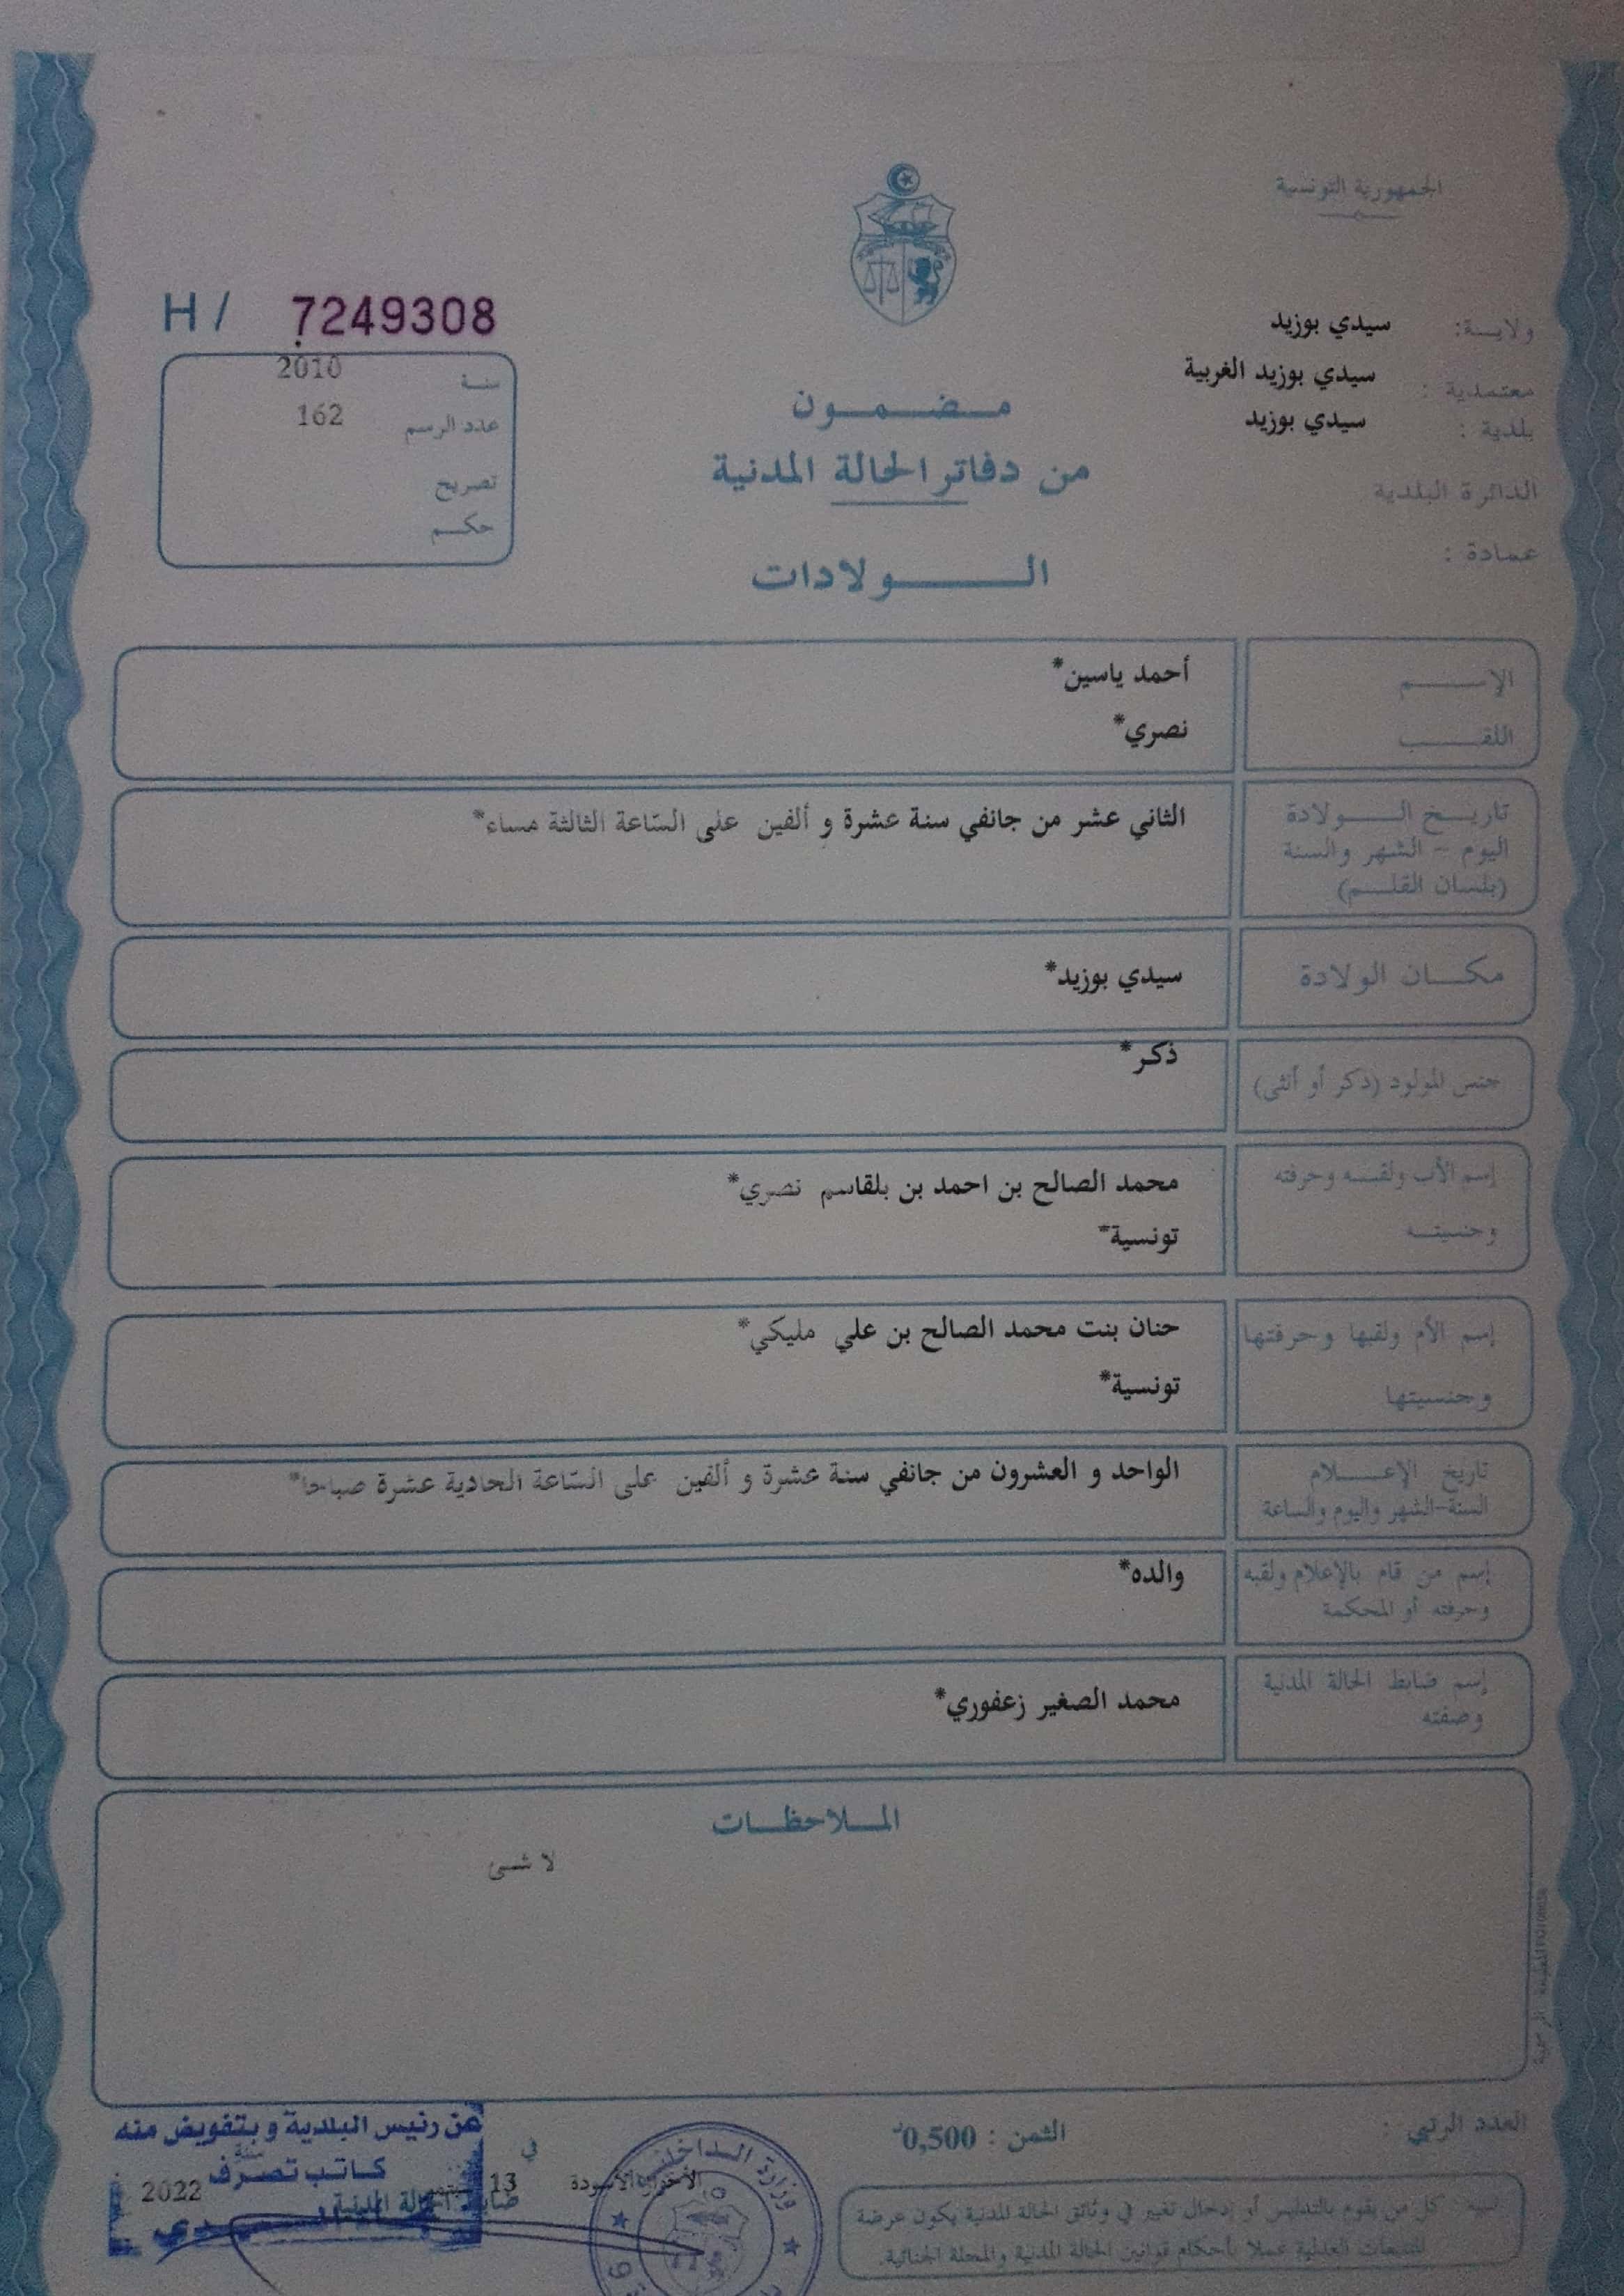 الجمهورية التونسية
ولايــة: سيدي بوزيد
معتمدية : سيدي بوزيد الغربية
بلدية : سيدي بوزيد
الدائرة البلدية
عمادة :
H/ 7249308
سنة 2010
عدد الرسم 162
تصريح
حكم
مضمون
من دفاتر الحالة المدنية
الولادات
الإسم أحمد ياسين*
اللقب نصري*
تاريخ الولادة
اليوم - الشهر والسنة
(بلسان القلم)
الثاني عشر من جانفي سنة عشرة و ألفين على الساعة الثالثة مساء*
مكان الولادة سيدي بوزيد*
جنس المولود (ذكر أو أنثى) ذكر*
إسم الأب ولقبه وحرفته محمد الصالح بن احمد بن بلقاسم نصري*
وجنسيته تونسية*
إسم الأم ولقبها وحرفتها حنان بنت محمد الصالح بن علي مليكي*
وجنسيتها تونسية*
تاريخ الإعلام
السنة-الشهر واليوم والساعة
الواحد و العشرون من جانفي سنة عشرة و ألفين على الساعة الحادية عشرة صباحا*
إسم من قام بالإعلام ولقبه
وحرفته أو المحكمة
والده*
إسم ضابط الحالة المدنية
وصفته
محمد الصغير زعفوري*
الملاحظات
لا شىء
العدد الرتبي :
الثمن : 0,500د
تنبيه : كل من يقوم بالتدليس أو إدخال تغيير في وثائق الحالة المدنية يكون عرضة
للتتبعات العدلية عملا بأحكام قوانين الحالة المدنية والمجلة الجنائية.
وزارة الداخلية
في
13
سنة
2022
ضابط الحالة المدنية
عن رئيس البلدية وبتفويض منه
كاتب تصرف